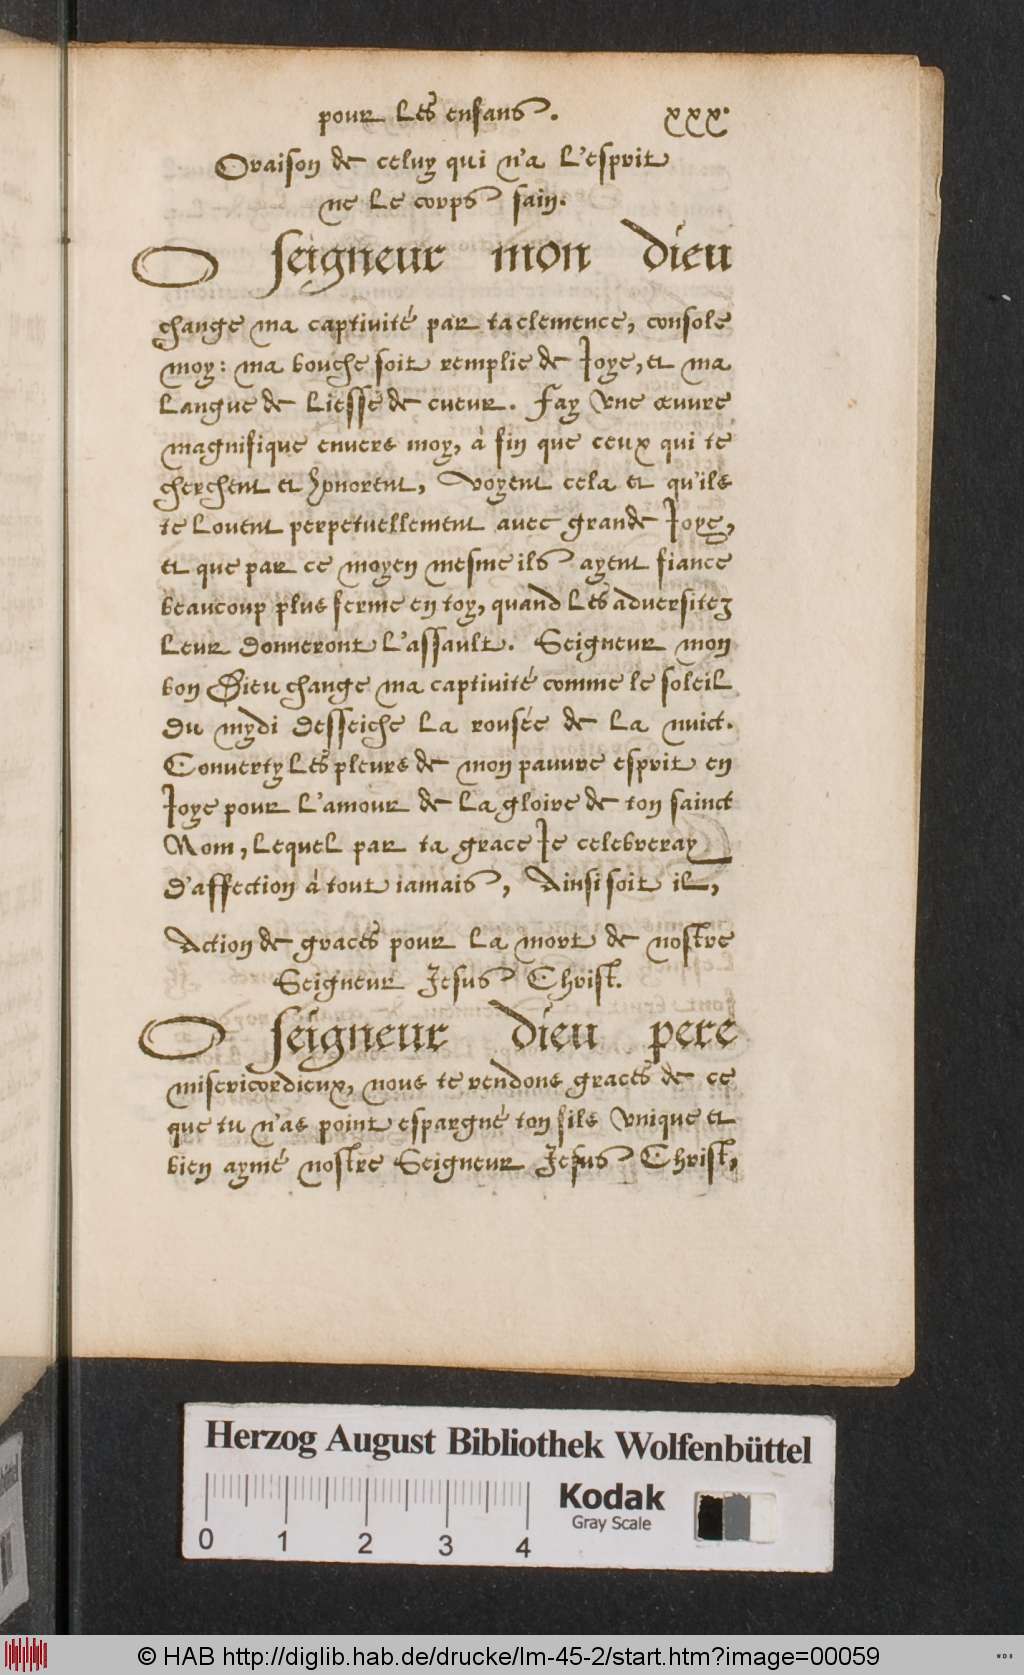 pour les enfans. xxx.
Oraison de celuy qui n'a l'esprit
ne le corps sain.
O seigneur mon dieu
change ma captivité par ta clemence, console
moy: ma bouche soit remplie de Joye, et ma
langue de liesse de cueur. Fay vne œuure
magnifique enuers moy, à fin que ceux qui te
cherchent et honorent, voyent cela et qu'ils
te louent perpetuellement auec grande Joye,
et que par ce moyen mesme ils ayent fiance
beaucoup plus ferme en toy, quand les aduersitez
leur donneront l'assault. Seigneur mon
bon Dieu change ma captiuité comme le soleil
du mydi desseiche la rousée de la nuict.
Conuerty les pleurs de mon pauure esprit en
Joye pour l'amour de la gloire de ton sainct
Nom, lequel par ta grace Je celebreray
d'affection à tout iamais, Ainsi soit il,
Action de graces pour la mort de nostre
Seigneur Jesus Christ.
O seigneur dieu pere
misericordieux, nous te rendons graces de ce
que tu n'as point espargné ton fils vnique et
bien aymé nostre Seigneur Jesus Christ,
Herzog August Bibliothek Wolfenbüttel
Kodak
Gray Scale
0 1 2 3 4
© HAB http://diglib.hab.de/drucke/lm-45-2/start.htm?image=00059